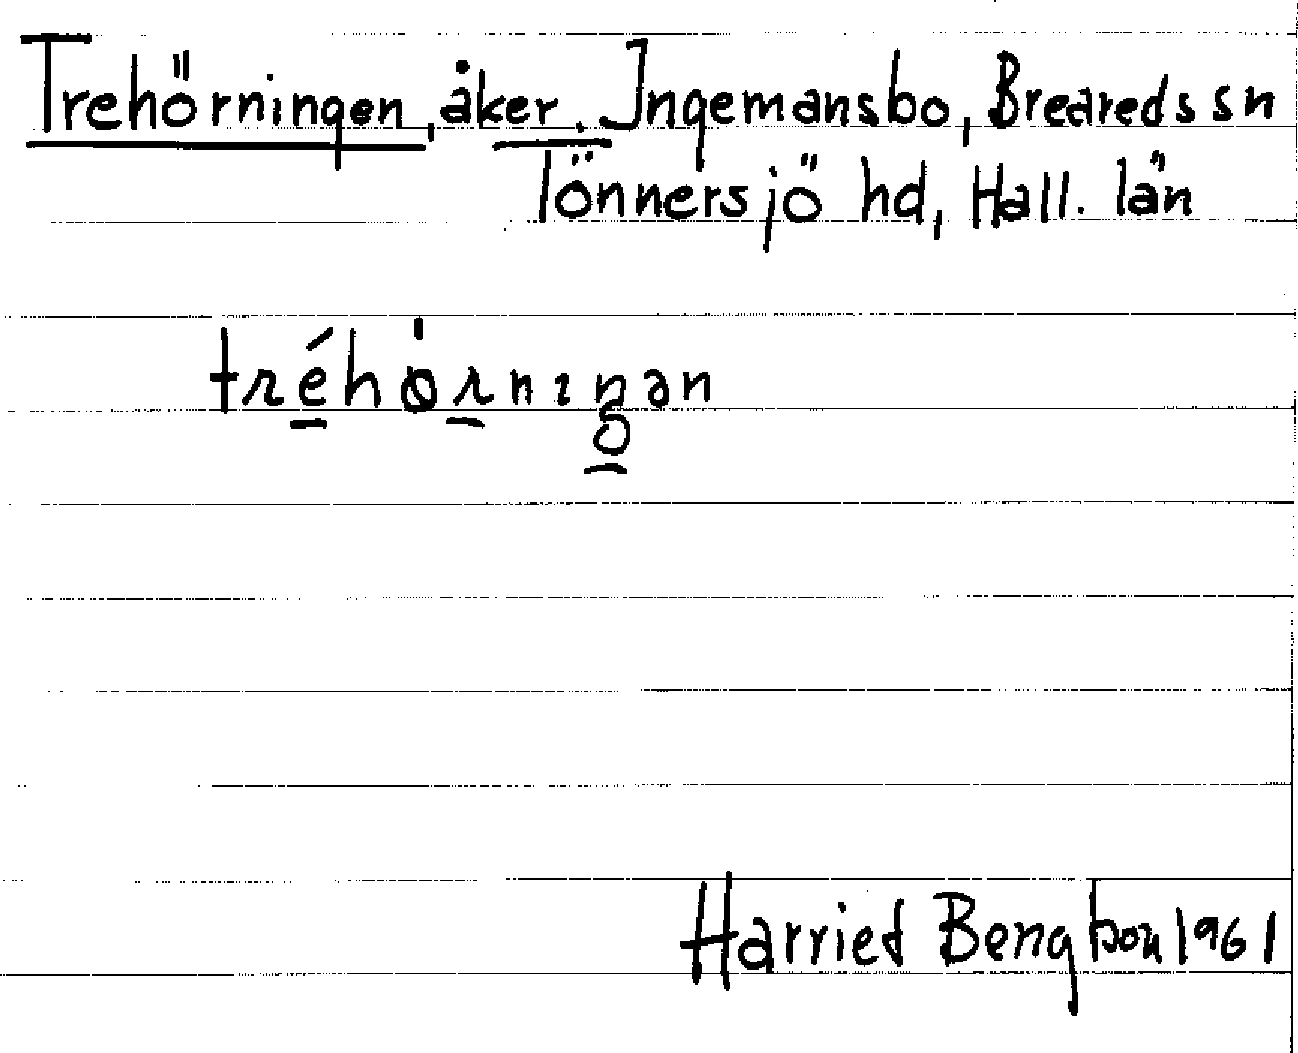 Trehörningen, åker. Ingemansbo, Breareds sn
Tönnersjö hd, Hall. län
tréhö́rnıŋən
Harriet Bengtson 1961